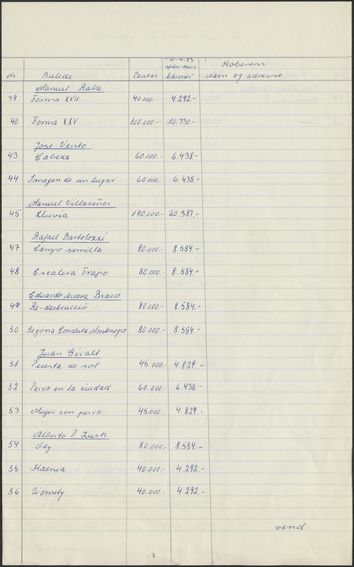 Køberens
Nr. Billede Pesetas kroner navn og adresse
Manuel Raba
39 Forma XXII 40.000.- 4.292.-
40 Forma XXV 100.000.- 10.730.-
José Vento
43 Cabeza 60.000.- 6.438.-
44 Imagen de un lugar 60.000 6.438.-
Manuel Villaseñor
45 Lluvia 190.000.- 20.387.-
Rafael Bartolozzi
47 Campo semilla 80.000.- 8.584.-
48 Escalera Trapo 80.000.- 8.584.-
Eduardo Arranz Bravo
49 Re-destrucció 80.000.- 8.584.-
50 Segona Conchita Montenegro 80.000.- 8.584.-
Juan Giralt
51 Puesta de sol 45.000.- 4.829.-
52 Perro en la ciudad 60.000.- 6.438.-
53 Mujer con perro 45.000.- 4.829.-
Alberto P.
54 80.000.- 8.584.-
55 40.000.- 4.292.-
56 40.000.- 4.292.-
vend
3